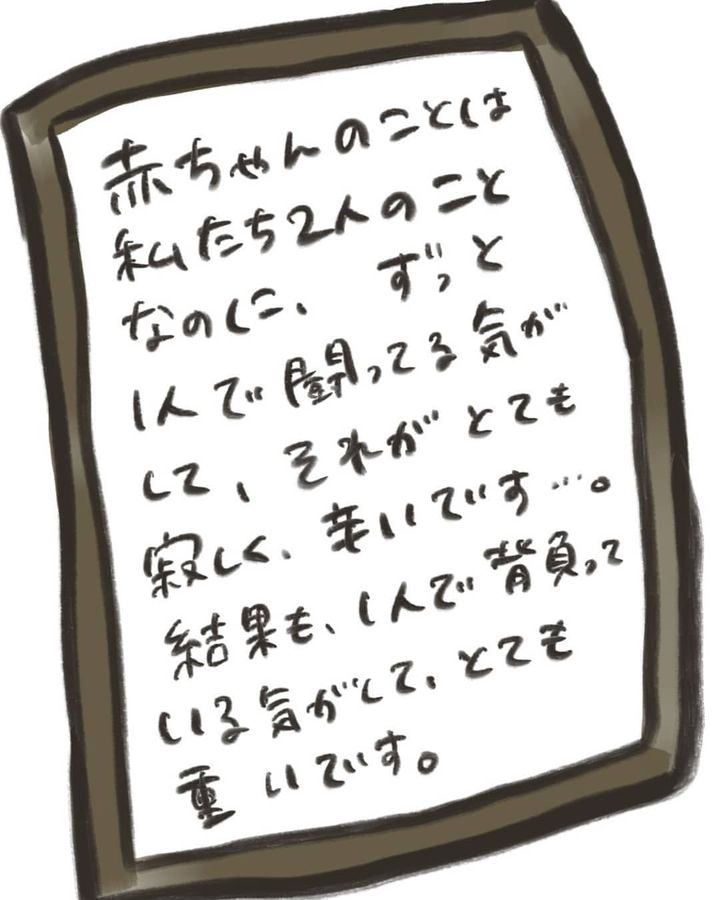 赤ちゃんのことは
私たち2人のこと
なのに、 ずっと
1人で闘ってる気が
して、それがとても
寂しく、辛いです…。
結果も、1人で背負って
いる気がして、とても
重いです。